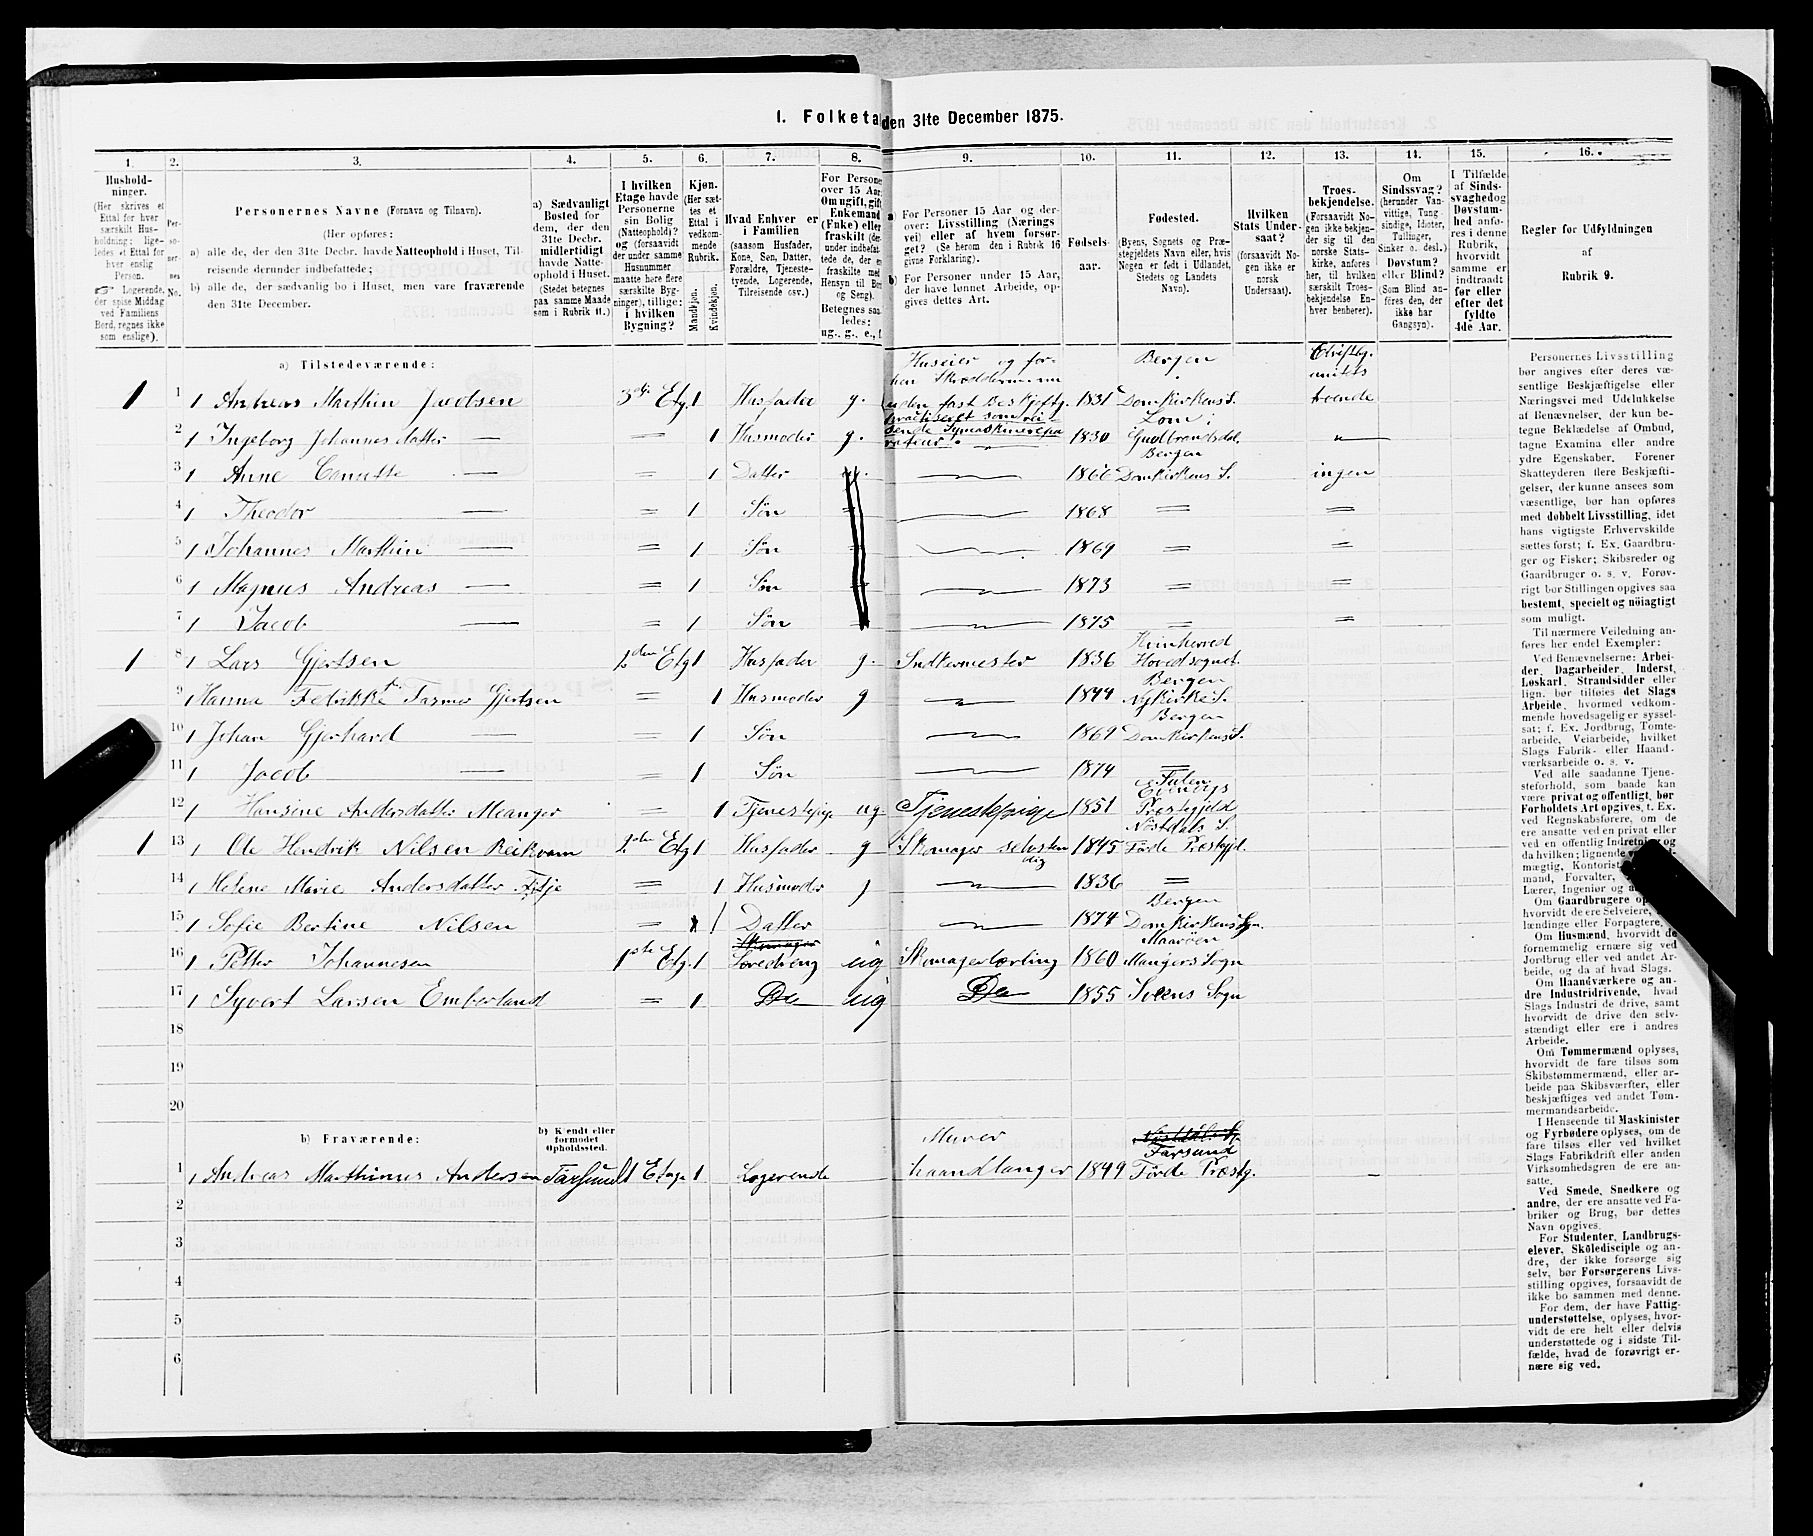 1. Folketal den 31te December 1875.
1. 2. 3. 4. 5. 6. 7. 8. 9. 10. 11. 12. 13. 14. 15. 16.
Hushold-
ninger.
(Her skrives et
Ettal for hver
særskilt Hus-
holdning; lige-
ledes et Ettal for
hver enslig
Person.
☞ Logerende,
der spise Middag
ved Familiens
Bord, regnes ikke
som enslige).
Per-
so-
ner-
nes
No.
Personernes Navne (Fornavn og Tilnavn).
(Her opføres:
a) alle de, der den 31te Decbr. havde Natteophold i Huset, Til-
reisende derunder indbefattede;
b) alle de, der sædvanlig bo i Huset, men vare fraværende
den 31te December.
a) Sædvanligt
Bosted for
dem, der den
31te Decbr.
midlertidigt
havde Natte-
ophold i Huset.
(Stedet betegnes
paa samme Maade
som i Rubrik 11.)
I hvilken
Etage havde
Personerne
sin Bolig
(Natteophold)?
og (forsaavidt
der under samme
Husnummer
maatte høre flere
særskilte Byg-
ninger), tillige:
i hvilken
Bygning?
Kjøn.
(Her sæt-
tes et
Ettal i
vedkom-
mende
Rubrik.
Mandkjøn.
Kvindekjøn.
Hvad Enhver er
i Familien
(saasom Husfader,
Kone, Søn, Datter,
Forældre, Tjeneste-
tyende, Logerende,
Tilreisende osv.)
For Persone
over 15 Aar
Om ugift, gift
Enkemand
(Enke) eller
fraskilt (der-
under indbefat-
tede de, der e
fraskilte med
Hensyn til Bo
og Seng).
Betegnes saa-
ledes:
ug., g., e., f.
a) For Personer 15 Aar og der-
over: Livsstilling (Nærings-
vei) eller af hvem forsør-
get? (Se herom den i Rubrik 16
givne Forklaring).
b) For Personer under 15 Aar,
der have lønnet Arbeide, op-
gives dettes Art.
Fødsels-
aar.
Fødested.
(Byens, Sognets og Præ-
stegjeldets Navn eller, hvis
Nogen er født i Udlandet,
Stedets og Landets
Navn).
Hvilken
Stats Under-
saat?
(forsaavidt No-
gen ikke er
norsk
Undersaat).
Troes-
bekjendelse.
(Forsaavidt No-
gen ikke bekjen-
der sig til den
norske Stats-
kirke, anføres
her, til hvilken
særskilt Troes-
bekjendelse En-
hver henhører).
Om
Sindssvag?
(herunder Van-
vittige, Tung-
sindige, Idioter,
Tullinger,
Sinker o. desl.)
Døvstum?
eller Blind?
(Som Blind an-
føres den, der
ikke har
Gangsyn).
I Tilfælde
af Sinds-
svaghed og
Døvstum-
hed anfø-
res i denne
Rubrik,
hvorvidt
samme er
indtraadt
før eller
efter det
fyldte
4de Aar.
Regler for Udfyldningen
af
Rubrik 9.
a) Tilstedeværende:
Huseier og for-
hen Skreddermann
Bergen
1 1 1 Andreas Marthin Jacobsen 3die Etg. 1 Husfader g. uden fast Beskjeftg. 1831 Domkirkens S. troende
2 1 Ingeborg Johannesdatter — = 1 Husmoder g. 1830 Lom i Gudbrandsdal. — " —
3 1 Anne — = 1 Datter — 1866 Bergen Domkirkens S. ingen
4 1 Theodor — = 1 Søn — 1868 = =
5 1 Johannes Marthin — = 1 Søn — 1869 = =
6 1 Magnus Andreas — = 1 Søn — 1873 = =
7 1 Jacob — = 1 Søn — 1875 = =
1 8 1 Lars Gjertsen 2den Etg 1 Husfader g. 1836 Hovedsognet.
9 1 Hanna Fedrikke Gjertsen = 1 Husmoder g — 1844 Bergen Nykirke S.
10 1 Johan Gjerhard = 1 Søn — 1869 Bergen Domkirkens S.
11 1 Jacob — = 1 Søn — 1874 =
12 1 Hansine Andersdatter Meanger = 1 Tjenestepige ug. Tjenestepige 1851 Præstegjeld
1 13 1 Ole Hendrik Nilsen Reikvam 2den Etg 1 Husfader g Skomager selvsten dig 1845 Førde Præstgjd.
14 1 Helene Marie Andersdatter = 1 Husmoder — 1836 =
15 1 Sofie Bertine Nilsen = 1 Datter — 1874 Bergen Domkirkens Sogn.
16 1 Petter Johannesen 1ste Etg. 1 Læredreng ug Skomagerlærling 1860 Mangers Sogn
17 1 Syvert Larsen Emberland = 1 Do ug Do 1855 Sogn
18
19
20
b) Fraværende:
b) Kjendt eller
formodet
Opholdssted.
Murer
Farsund
1 1 Andreas Marthinus Andersen Farsund 1 Etage 1 Logerende haandlanger 1849 Førde Præstg. —
2
3
4
5
6
Personernes Livsstilling
bør angives efter deres væ-
sentlige Beskjæftigelse eller
Næringsvei med Udelukkelse
af Benævnelser, der kun be-
tegne Beklædelse af Ombud,
tagne Examina eller andre
ydre Egenskaber. Forener
Skatteyderen flere Beskjæfti-
gelser, der kunne ansees som
væsentlige, bør han opføres
med dobbelt Livsstilling, idet
hans vigtigste Erhvervskilde
sættes først; f. Ex. Gaardbru-
ger og Fisker; Skibsreder og
Gaardbruger o. s. v. Forøv-
rigt bør Stillingen opgives saa
bestemt, specielt og nöiagtigt
som muligt.
Til nærmere Veiledning an-
føres her endel Exempler:
Ved Benævnelserne: Arbei-
der, Dagarbeider, Inderst,
Løskarl, Strandsidder eller
lign. bør tilføies det Slags
Arbeide, hvormed vedkom-
mende hovedsagelig er syssel-
sat; f. Ex. Jordbrug, Tomte-
arbeide, Veiarbeide, hvilket
Slags Fabrik- eller Haand-
værksarbeide o. s. v.
Ved alle saadanne Tjene-
steforhold, som baade kan
være privat og offentligt, bør
Forholdets Art opgives, t. Ex.
ved Regnskabsførere, om de
ere ansatte ved en privat eller
ved en offentlig Indretning og
da hvilken; lignende
mægtig, Kontorist
mand, Forvalter,
Lærer, Ingeniør og
Om Gaardbrugere
hvorvidt de ere Selveiere,
lændinge eller Forpagtere,
Om Husmænd, hvorvidt de
fornemmelig ernære sig ved
Jordbrug eller ved andet Ar-
beide, og da af hvad Slags.
Om Haandværkere og an-
dre Industridrivende, hvad
Slags Industri de drive, samt
hvorvidt de drive den selv-
stændigt eller ere i andres
Arbeide.
Om Tømmermænd oplyses,
hvorvidt de fare tilsøs som
Skibstømmermænd, eller ar-
beide paa Skibsværfter, eller
beskjæftiges ved andet Tøm-
mermandsarbeide.
I Henseende til Maskinister
og Fyrbødere oplyses, om de
fare tilsøs eller ved hvilket
Slags Fabrikdrift eller anden
Virksomhedsgren de ere an-
satte.
Ved Smede, Snedkere og
andre, der ere ansatte ved Fa-
briker og Brug, bør dettes
Navn opgives.
For Studenter, Landbrugs-
elever, Skoledisciple og an-
dre, der ikke forsørge sig
selv, bør Forsørgerens Livs-
stilling opgives, forsaavidt de
ikke bo sammen med denne.
For dem, der have Fattig-
understøttelse, oplyses, hvor-
vidt de ere helt eller delvis
understøttede og i sidste Til-
fælde, hvad de forøvrigt er-
nære sig ved.